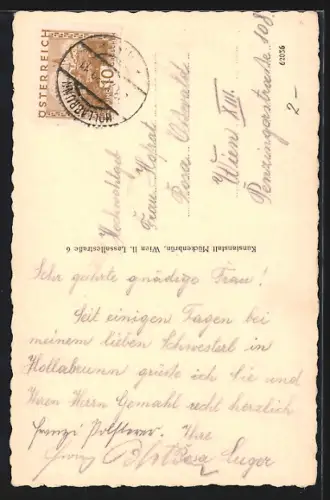 ÖSTERREICH
10
HOLLABRUNN
62036
2-
Hochwohlgeb
Frau Hofrat
Rosa Ostwald
Wien XIII.
Penzingerstrasse 108
Kunstanstalt Mückenbrün, Wien II. Lassallestraße 6
Sehr geehrte gnädige Frau!
Seit einigen Tagen bei
meinem lieben Schwesterl in
Hollabrunn grüße ich Sie und
Ihren Herrn Gemahl recht herzlich
Ihre
Rosa Luger